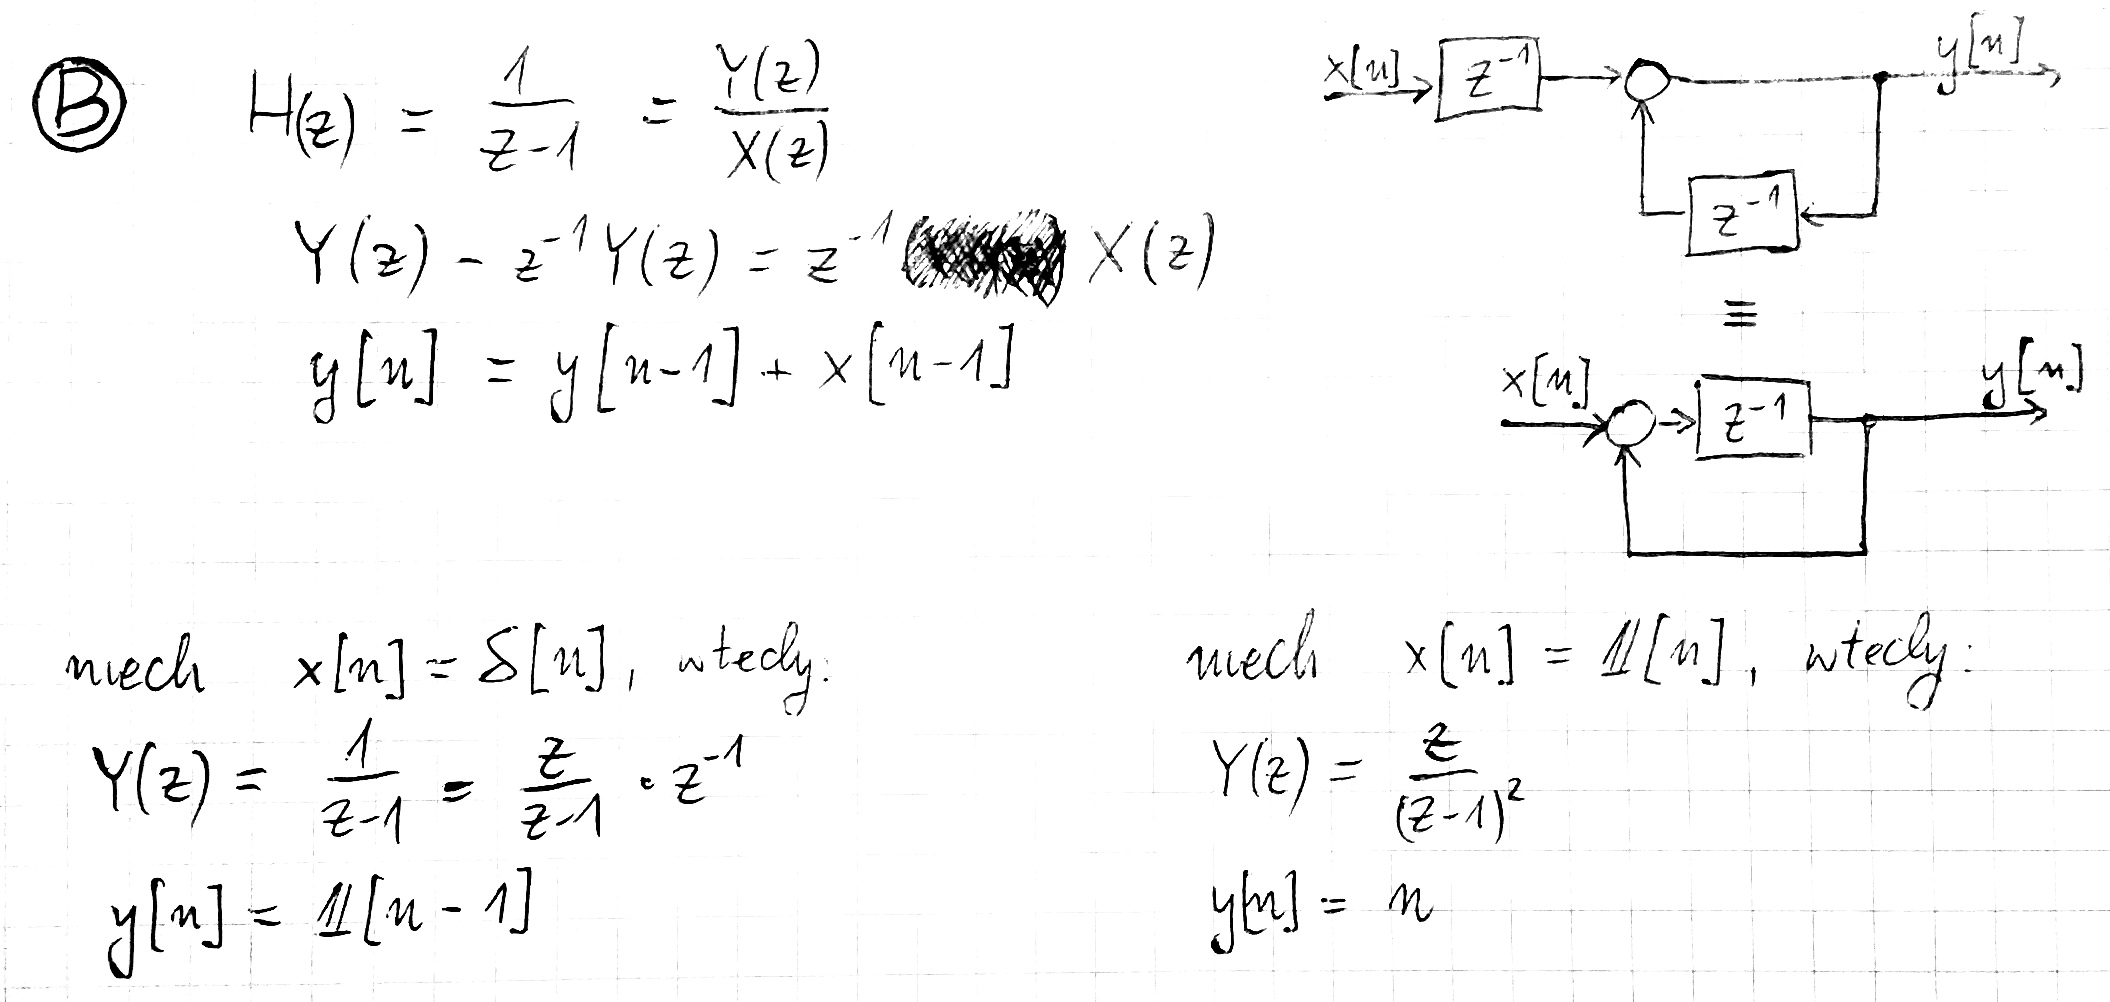 B
H(z) = 1/(z-1) = Y(z)/X(z)
Y(z) - z⁻¹Y(z) = z⁻¹ X(z)
y[n] = y[n-1] + x[n-1]
x[n] z⁻¹ y[n]
z⁻¹
≡
x[n] z⁻¹ y[n]
niech x[n] = δ[n], wtedy:
Y(z) = 1/(z-1) = z/(z-1) · z⁻¹
y[n] = 𝟙[n-1]
niech x[n] = 𝟙[n], wtedy:
Y(z) = z/(z-1)²
y[n] = n